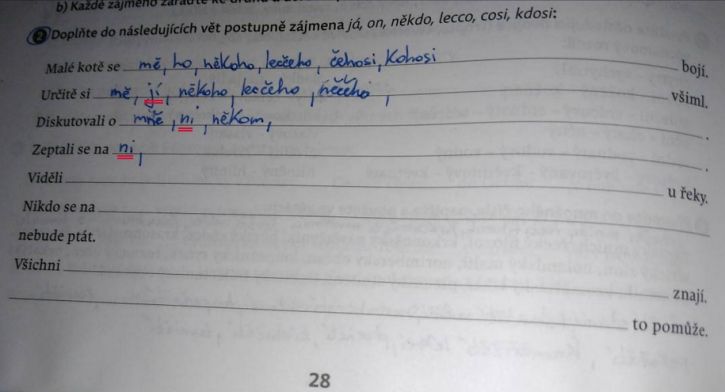 b) Každé zájmeno zařaďte ke druhu a
2 Doplňte do následujících vět postupně zájmena já, on, někdo, lecco, cosi, kdosi:
Malé kotě se mě, ho, někoho, lecčeho, čehosi, kohosi bojí.
Určitě si mě, jí, někoho, lecčeho, něčeho, všiml.
Diskutovali o mně, ni, někom, .
Zeptali se na ni, .
Viděli u řeky.
Nikdo se na
nebude ptát.
Všichni znají.
to pomůže.
28